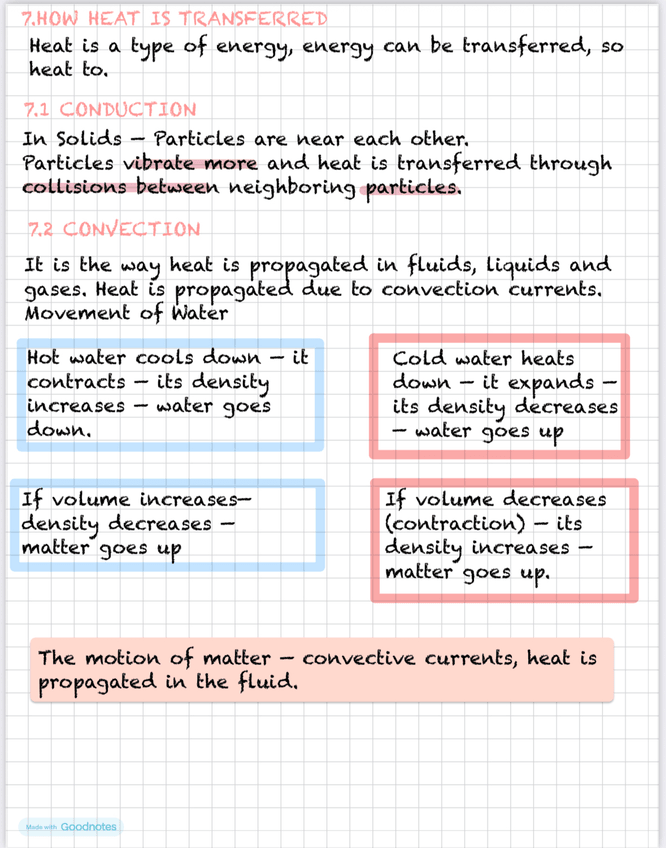 7.HOW HEAT IS TRANSFERRED
Heat is a type of energy, energy can be transferred, so
heat to.
7.1 CONDUCTION
In Solids – Particles are near each other.
Particles vibrate more and heat is transferred through
collisions between neighboring particles.
7.2 CONVECTION
It is the way heat is propagated in fluids, liquids and
gases. Heat is propagated due to convection currents.
Movement of Water
Hot water cools down – it
contracts – its density
increases – water goes
down.
Cold water heats
down – it expands –
its density decreases
– water goes up
If volume increases–
density decreases –
matter goes up
If volume decreases
(contraction) – its
density increases –
matter goes up.
The motion of matter – convective currents, heat is
propagated in the fluid.
Made with Goodnotes